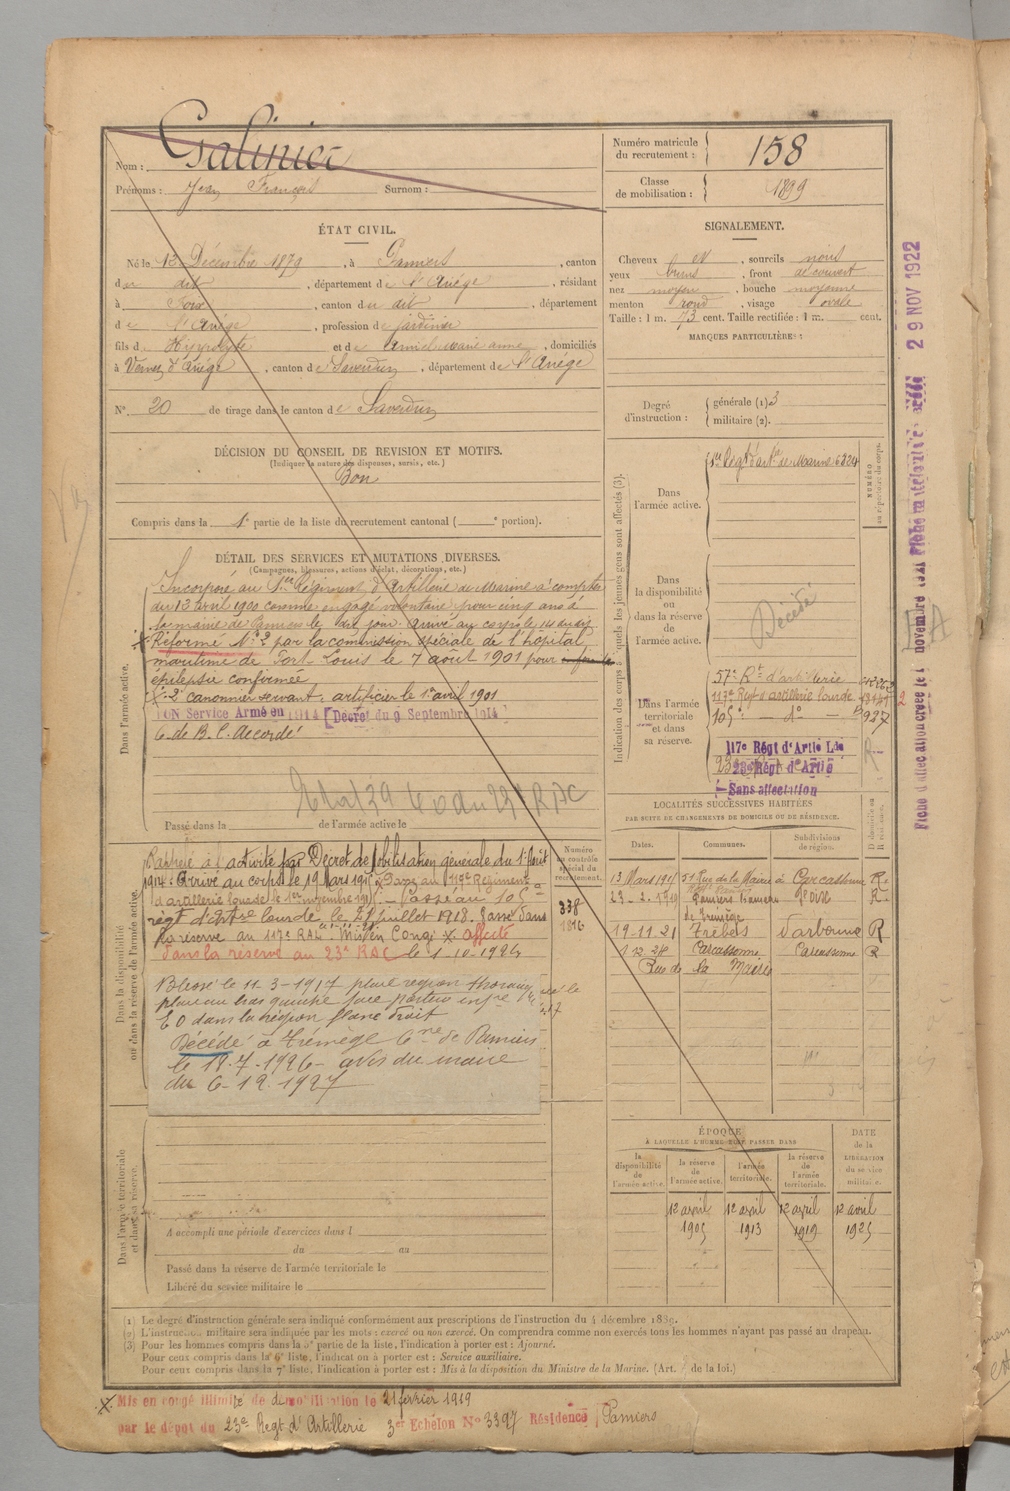 Nom : Galinier
Prénoms : Jean François Surnom :
Numéro matricule du recrutement : 158
Classe de mobilisation : 1899
ÉTAT CIVIL.
Né le 12 Décembre 1879, à Pamiers, canton
du dit, département de l'Ariége, résidant
à Foix, canton du dit, département
de l'Ariége, profession de jardinier
fils d Hyppolyte et de Amiel Marie Anne, domiciliés
à Vernet d'Ariége, canton de Saverdun, département de l'Ariége
N° 20 de tirage dans le canton de Saverdun
SIGNALEMENT.
Cheveux et, sourcils noirs
yeux bruns, front découvert
nez moyen, bouche moyenne
menton rond, visage ovale
Taille : 1 m. 73 cent. Taille rectifiée : 1 m. cent.
MARQUES PARTICULIÈRES :
Degré d'instruction : générale (1) 3
militaire (2).
DÉCISION DU CONSEIL DE REVISION ET MOTIFS.
(Indiquer la nature des dispenses, sursis, etc.)
Bon
Compris dans la 1e partie de la liste du recrutement cantonal ( e portion).
DÉTAIL DES SERVICES ET MUTATIONS DIVERSES.
(Campagnes, blessures, actions d'éclat, décorations, etc.)
Dans l'armée active.
Incorporé au 1er Régiment d'Artillerie de Marine à compter
du 12 avril 1900 comme engagé volontaire pour cinq ans à
la mairie de Pamiers le dit jour. Arrivé au corps le 14 du dit
Réformé N° 2 par la commission spéciale de l'hôpital
maritime de Port-Louis le 7 août 1901 pour
épilepsie confirmée
2e canonnier servant, artificier le 1er avril 1901
BON Service Armé en 1914 [Décret du 9 Septembre 1914]
C. de B. C. Accordé
Passé dans la de l'armée active le
Indication des corps auxquels les jeunes gens sont affectés (3).
NUMÉRO au répertoire du corps.
Dans l'armée active.
1er Régt d'art.ie de Marine 6324
Dans la disponibilité ou dans la réserve de l'armée active.
Décédé
Dans l'armée territoriale et dans sa réserve.
57e Rt d'artillerie
117e Regt d'artillerie lourde
105e — do — 927
117e Régt d'Artie Lde
23e Régt d'Artie
Sans affectation
Fiche d'affectation créée le
29 NOV 1922
Dans la disponibilité ou dans la réserve de l'armée active.
Numéro au contrôle spécial du recrutement.
338
1816
Rappelé à l'activité par Décret de Mobilisation générale du 1er Août
1914. Arrivé au corps le 19 Mars 1915. Passé au 117e Régiment
d'artillerie lourde le 1er novembre 1915. Passé au 105e
régt d'Artie lourde le 21 juillet 1918. Passé dans
la réserve au 117e RAL. Mis en Congé X. Affecté
dans la réserve au 23e RAC le 1-10-1924
Blessé le 11-3-1917 plaie région thoracique
plaie au bras gauche face postero infre
E O dans la région flanc droit
Décédé à Trémège Cne de Pamiers
le 18-7-1926 - avis du maire
du 6-12-1927
LOCALITÉS SUCCESSIVES HABITÉES
PAR SUITE DE CHANGEMENTS DE DOMICILE OU DE RÉSIDENCE.
Dates. Communes. Subdivisions de région.
13 Mars 1915 51 Rue de la Mairie à Carcassonne R.
23-2-1919 Pamiers Hameau de Trémège R.
19-11-21 Trèbes Narbonne R
1-12-28 Carcassonne Carcassonne R
Rue de la Mairie
ÉPOQUE
À LAQUELLE L'HOMME DOIT PASSER DANS
DATE de la LIBÉRATION du service militaire.
la disponibilité de l'armée active. la réserve de l'armée active. l'armée territoriale. la réserve de l'armée territoriale.
12 avril 1905 12 avril 1913 12 avril 1919 12 avril 1925
Dans l'armée territoriale et dans sa réserve.
A accompli une période d'exercices dans l
du au
Passé dans la réserve de l'armée territoriale le
Libéré du service militaire le
(1) Le degré d'instruction générale sera indiqué conformément aux prescriptions de l'instruction du 4 décembre 1889.
(2) L'instruction militaire sera indiquée par les mots : exercé ou non exercé. On comprendra comme non exercés tous les hommes n'ayant pas passé au drapeau.
(3) Pour les hommes compris dans la 5e partie de la liste, l'indication à porter est : Ajourné.
Pour ceux compris dans la 6e liste, l'indication à porter est : Service auxiliaire.
Pour ceux compris dans la 7e liste, l'indication à porter est : Mis à la disposition du Ministre de la Marine. (Art. de la loi.)
X Mis en congé illimité de démobilisation le 21 février 1919
par le dépôt du 23e Regt d'Artillerie 3er Echelon N° 3397 Résidence Pamiers